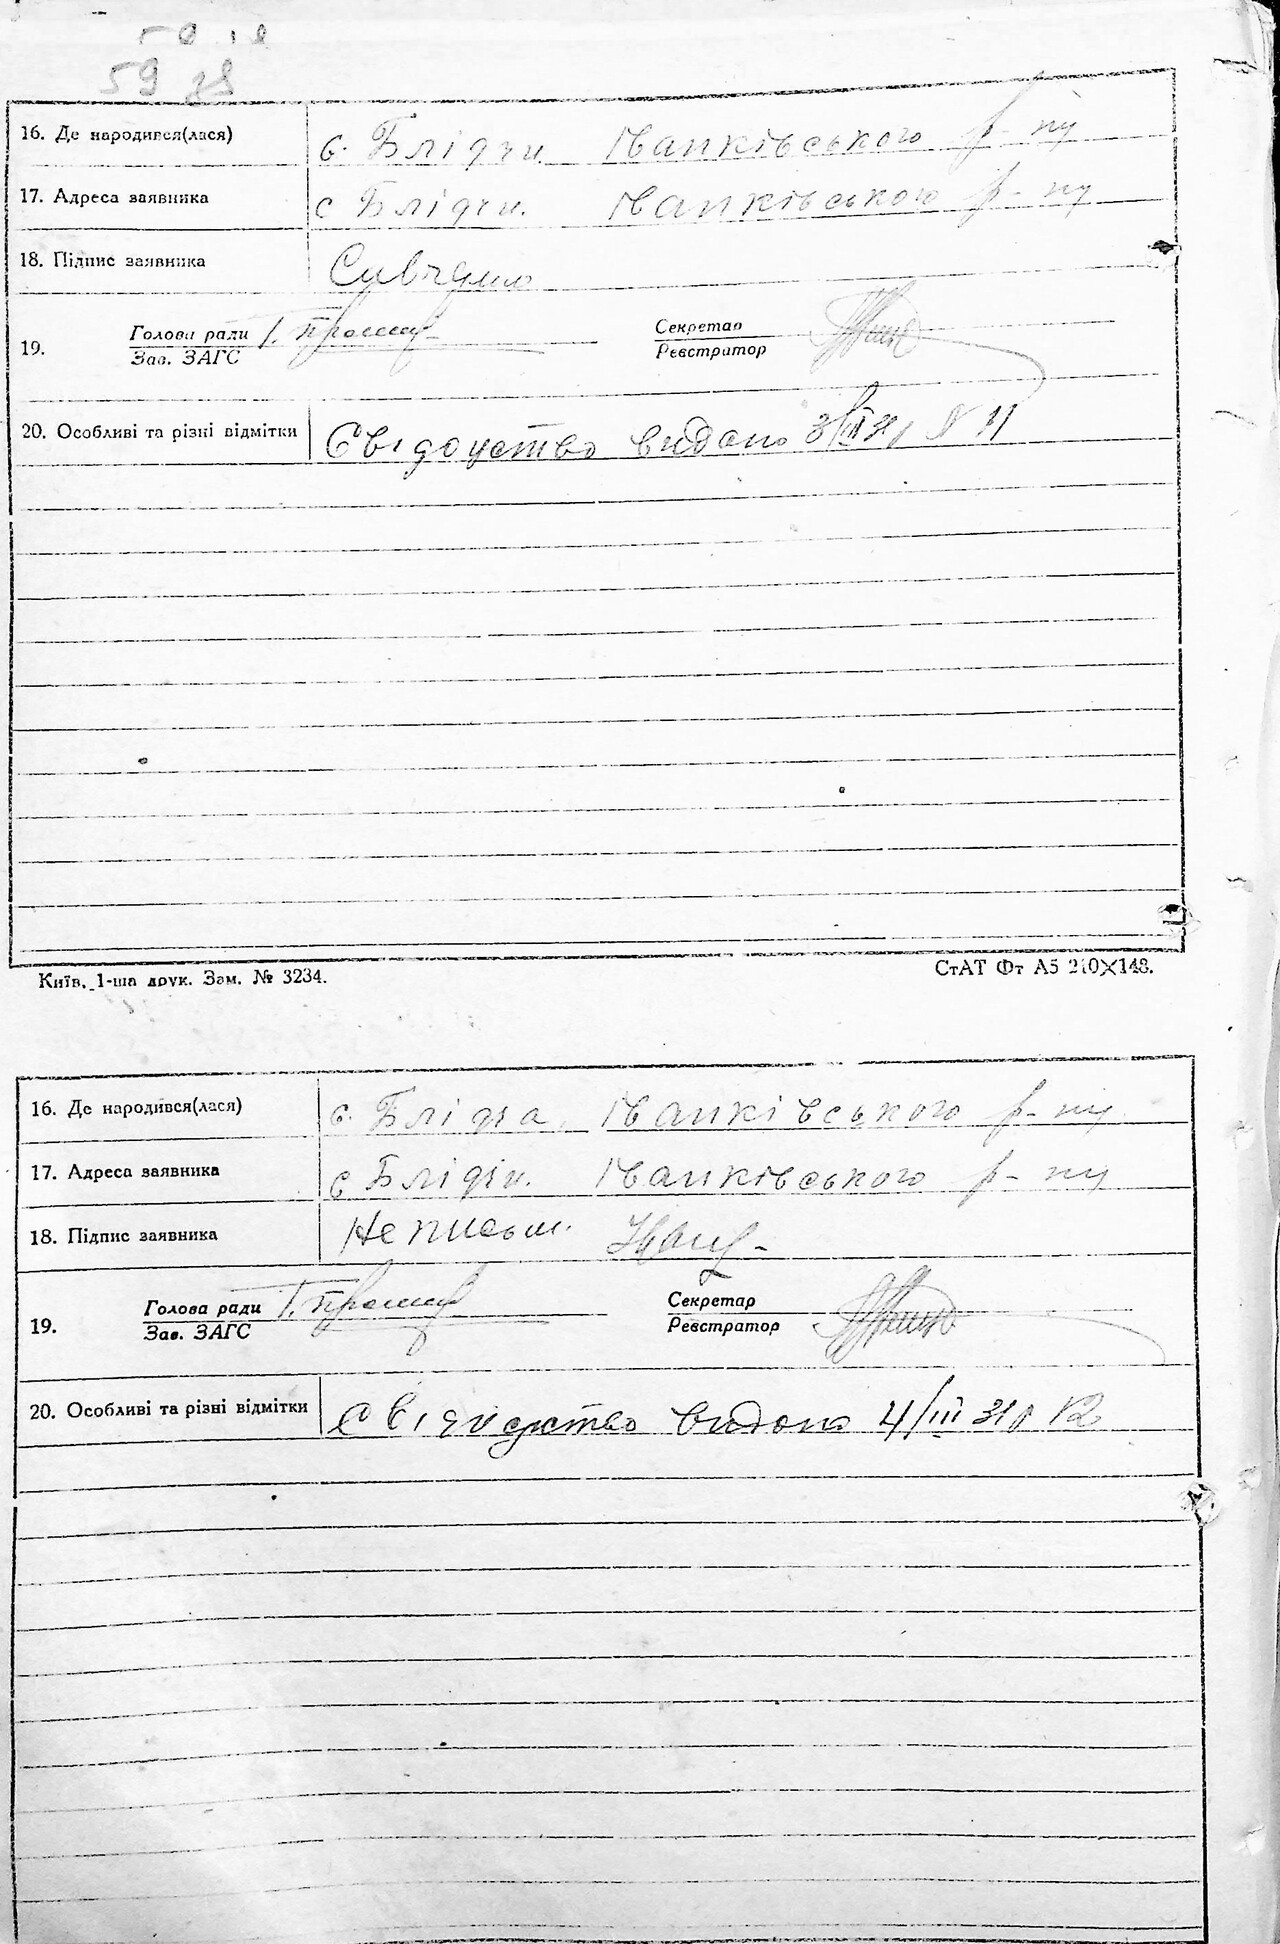 59 зв
16. Де народився(лася) с. Блідчи Іванківського р-ну
17. Адреса заявника с Блідчи. Іванківського р-ну
18. Підпис заявника
19. Голова ради Секретар
Зав. ЗАГС Реєстратор
20. Особливі та різні відмітки Свідоцтво видано 3/III 31 р № 11
Київ, 1-ша друк. Зам. № 3234. СтАТ Фт А5 210×148.
16. Де народився(лася) с. Блідча Іванківського р-ну
17. Адреса заявника с Блідчи. Іванківського р-ну
18. Підпис заявника Неписьм.
19. Голова ради Секретар
Зав. ЗАГС Реєстратор
20. Особливі та різні відмітки Свідоцтво видано 4/III 31 р 12